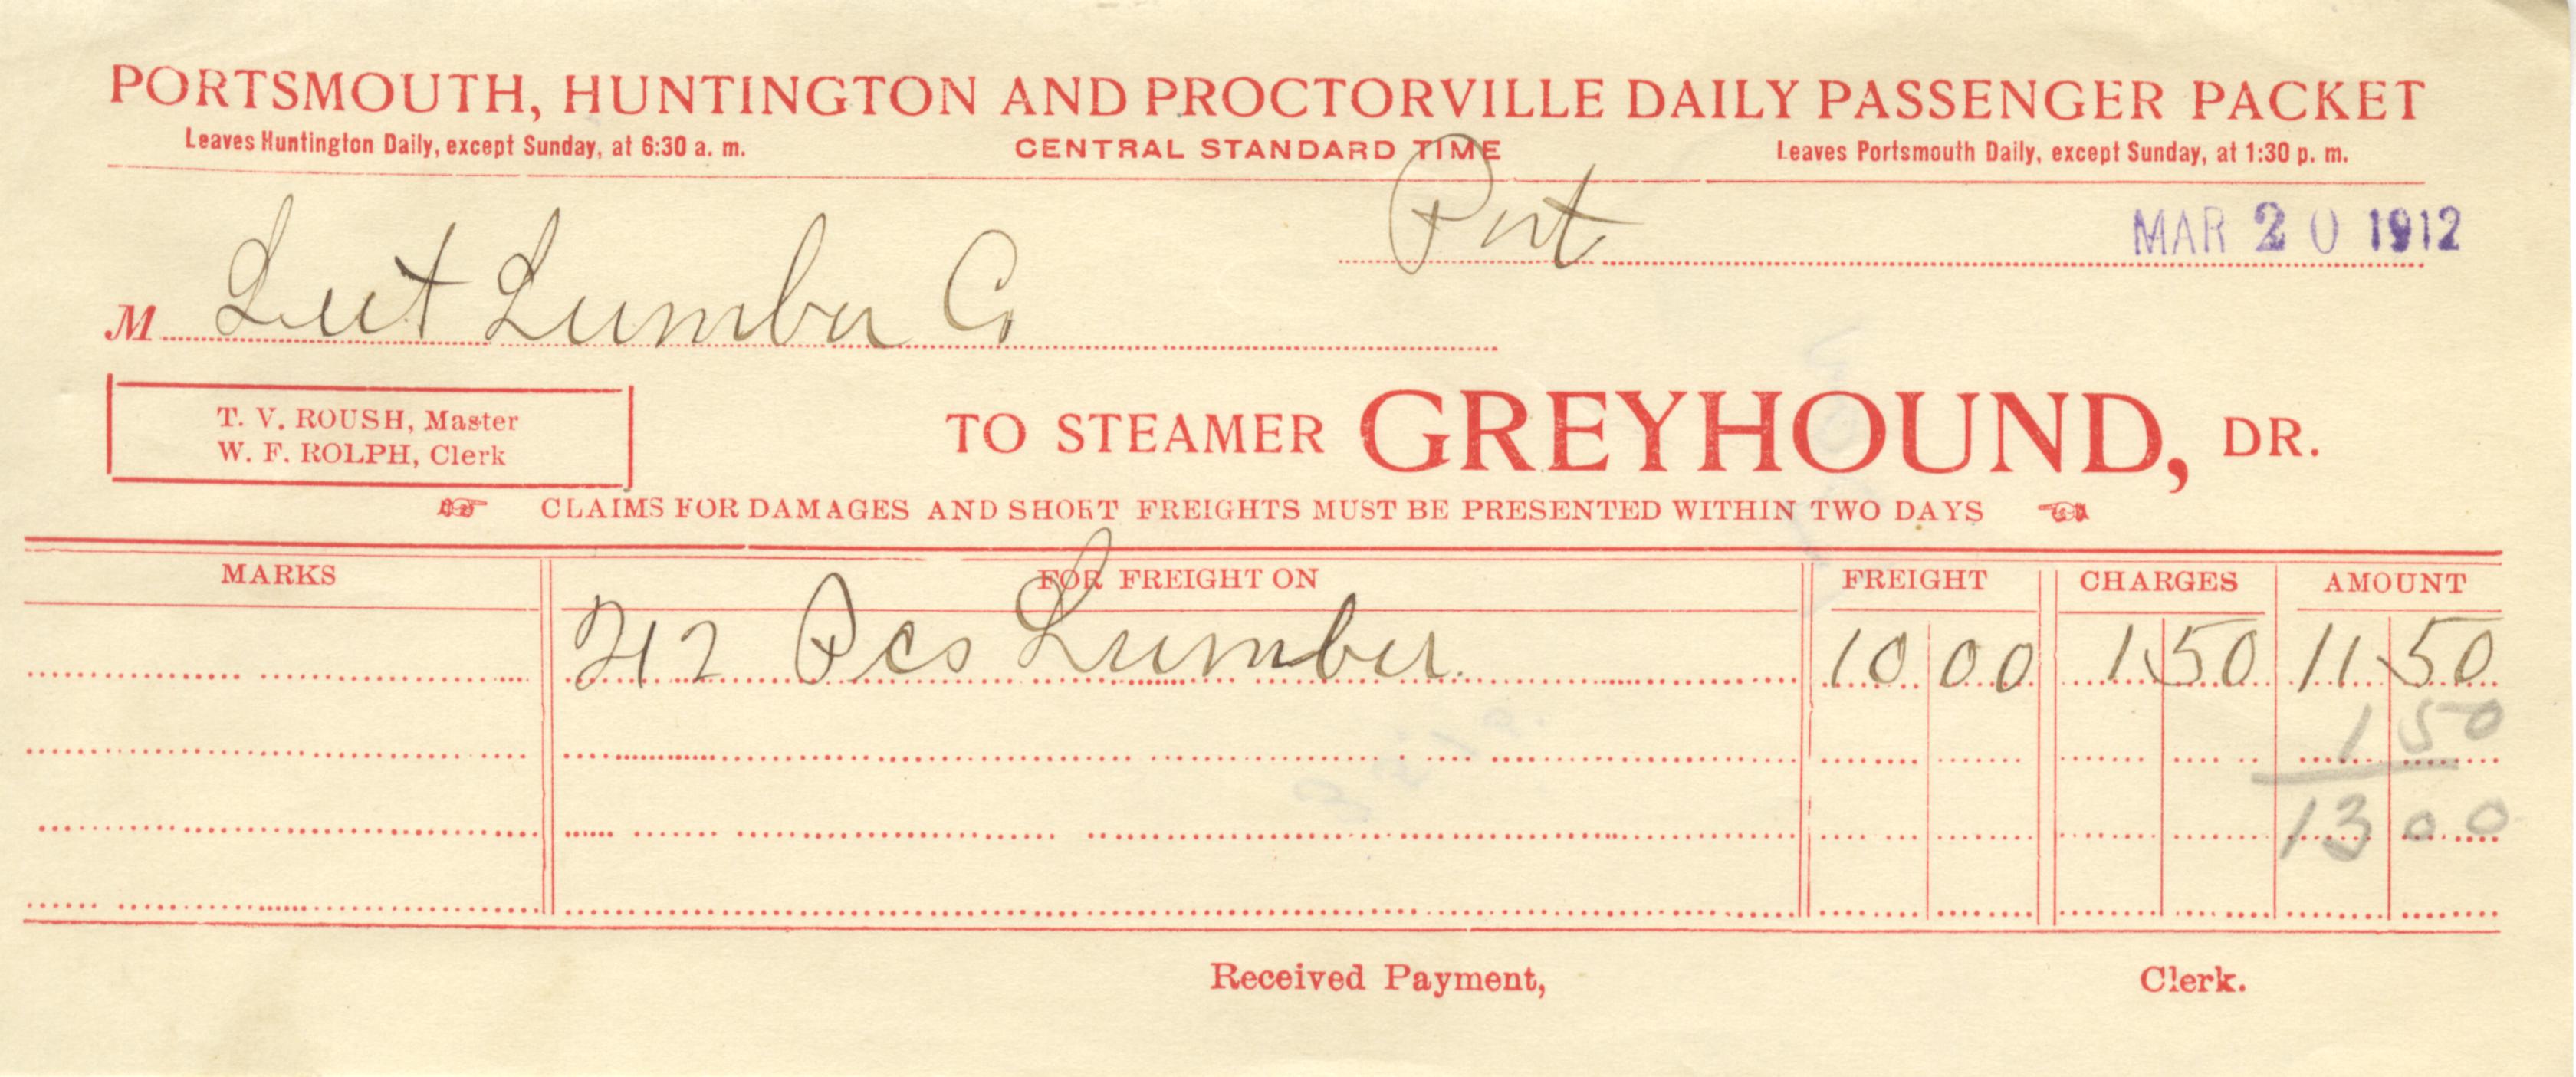 PORTSMOUTH, HUNTINGTON AND PROCTORVILLE DAILY PASSENGER PACKET
Leaves Huntington Daily, except Sunday, at 6:30 a. m. CENTRAL STANDARD TIME Leaves Portsmouth Daily, except Sunday, at 1:30 p. m.
Port MAR 20 1912
M Lumber Co
T. V. ROUSH, Master
W. F. ROLPH, Clerk
TO STEAMER GREYHOUND, DR.
☞ CLAIMS FOR DAMAGES AND SHORT FREIGHTS MUST BE PRESENTED WITHIN TWO DAYS ☜
MARKS FOR FREIGHT ON FREIGHT CHARGES AMOUNT
212 Pcs Lumber. 10 00 1 50 11 50
1 50
13 00
Received Payment, Clerk.